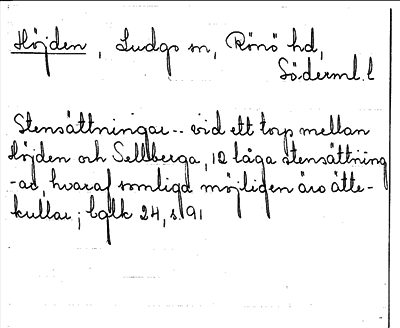 Höjden, Ludgo sn, Rönö hd,
Söderml. l
Stensättningar -- vid ett torp mellan
Höjden och Sellberga, 12 låga stensättning
-ar, hvaraf somliga möjligen äro ätte-
kullar; bglk 24, s. 91